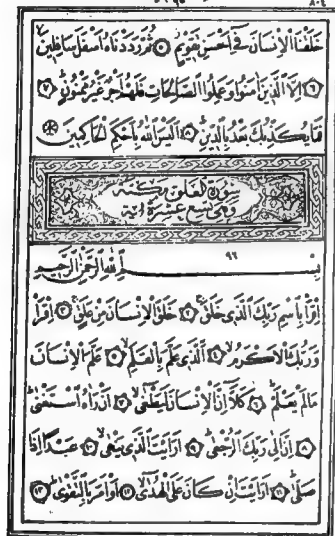 ٨٠٤
خَلَقْنَا الْاِنْسَانَ فٖٓي اَحْسَنِ تَقْوٖيمٍ ۝ ثُمَّ رَدَدْنَاهُ اَسْفَلَ سَافِلٖينَ
۝ اِلَّا الَّذٖينَ اٰمَنُوا وَعَمِلُوا الصَّالِحَاتِ فَلَهُمْ اَجْرٌ غَيْرُ مَمْنُونٍ ۝
فَمَا يُكَذِّبُكَ بَعْدُ بِالدّٖينِ ۝ اَلَيْسَ اللّٰهُ بِاَحْكَمِ الْحَاكِمٖينَ ۝
سورة العلق مكية
وهي تسع عشرة اية
٩٦
بِسْمِ اللّٰهِ الرَّحْمٰنِ الرَّحٖيمِ
اِقْرَأْ بِاسْمِ رَبِّكَ الَّذٖي خَلَقَ ۝ خَلَقَ الْاِنْسَانَ مِنْ عَلَقٍ ۝ اِقْرَأْ
وَرَبُّكَ الْاَكْرَمُ ۝ اَلَّذٖي عَلَّمَ بِالْقَلَمِ ۝ عَلَّمَ الْاِنْسَانَ
مَا لَمْ يَعْلَمْ ۝ كَلَّٓا اِنَّ الْاِنْسَانَ لَيَطْغٰى ۝ اَنْ رَاٰهُ اسْتَغْنٰى
۝ اِنَّ اِلٰى رَبِّكَ الرُّجْعٰى ۝ اَرَاَيْتَ الَّذٖي يَنْهٰى ۝ عَبْدًا اِذَا
صَلّٰى ۝ اَرَاَيْتَ اِنْ كَانَ عَلَى الْهُدٰى ۝ اَوْ اَمَرَ بِالتَّقْوٰى ۝